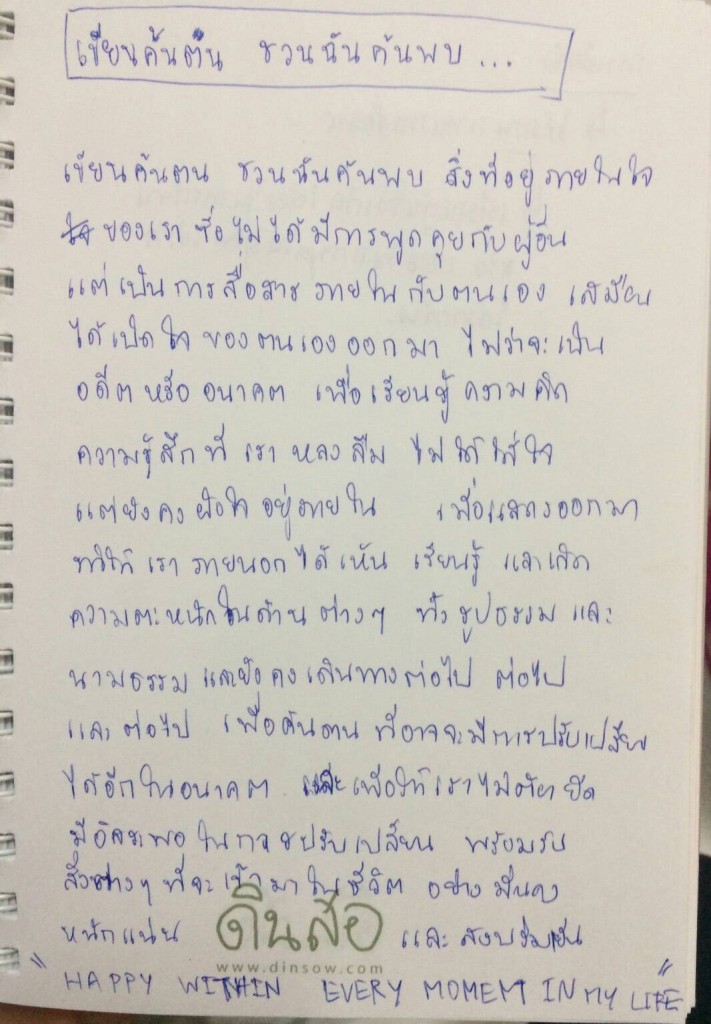 เขียนค้นตน ชวนฉันค้นพบ ...
เขียนค้นตน ชวนฉันค้นพบ สิ่งที่อยู่ภายในใจ
ของเรา ซึ่งไม่ได้มีการพูดคุยกับผู้อื่น
แต่เป็นการสื่อสารภายในกับตนเอง เสมือน
ได้เปิดใจของตนเองออกมา ไม่ว่าจะเป็น
อดีตหรืออนาคต เพื่อเรียนรู้ความคิด
ความรู้สึกที่เราหลงลืม ไม่ได้ใส่ใจ
แต่ยังคงฝังใจอยู่ภายใน เพื่อแสดงออกมา
ทำให้เราภายนอกได้เห็น เรียนรู้ และเกิด
ความตะหนักในด้านต่างๆ ทั้งรูปธรรมและ
นามธรรม และยังคงเดินทางต่อไป ต่อไป
และต่อไป เพื่อค้นตนที่อาจจะมีการปรับเปลี่ยน
ได้อีกในอนาคต และเพื่อให้เราไม่ต้องยึด
มีอิสระพอในการปรับเปลี่ยน พร้อมรับ
สิ่งต่างๆที่จะเข้ามาในชีวิต อย่างมั่นคง
หนักแน่น และสงบร่มเย็น
ดินสอ
www.dinsow.com
"HAPPY WITHIN EVERY MOMENT IN MY LIFE"